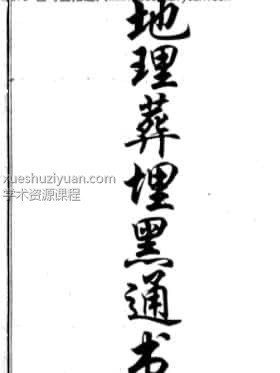 地理葬埋黑通书
xueshuziyuan.com
学术资源课程